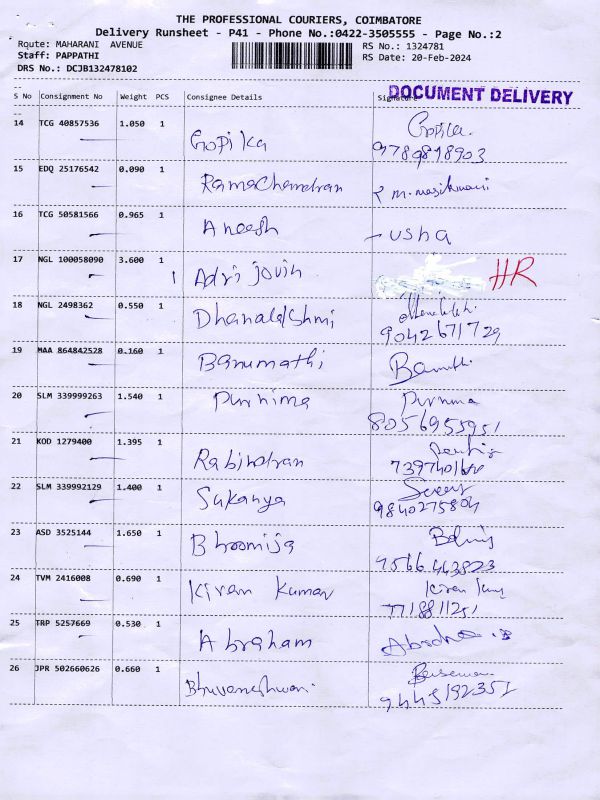 THE PROFESSIONAL COURIERS, COIMBATORE
Delivery Runsheet - P41 - Phone No.:0422-3505555 - Page No.:2
Route: MAHARANI AVENUE RS No.: 1324781
Staff: PAPPATHI RS Date: 20-Feb-2024
DRS No.: DCJB132478102
DOCUMENT DELIVERY
S No Consignment No Weight PCS Consignee Details Signature
14 TCG 40857536 1.050 1 Gopika Gopika.
9789898903
15 EDQ 25176542 0.090 1 Ramachandran
16 TCG 50581566 0.965 1 Aneesh - usha
17 NGL 100058090 3.600 1 Adri jovin HR
18 NGL 2498362 0.550 1 Dhanalakshmi
9042671729
19 MAA 864842528 0.160 1 Banumathi
20 SLM 339999263 1.540 1 Purnima Purnima
8056955951
21 KOD 1279400 1.395 1 Rabindran
22 SLM 339992129 1.400 1 Sukanya
9840275804
23 ASD 3525144 1.650 1 Bhoomija
9566443823
24 TVM 2416008 0.690 1 Kiran Kumar
7718811251
25 TRP 5257669 0.530 1 Abraham
26 JPR 502660626 0.660 1 Bhuvaneshwari.
9445192351